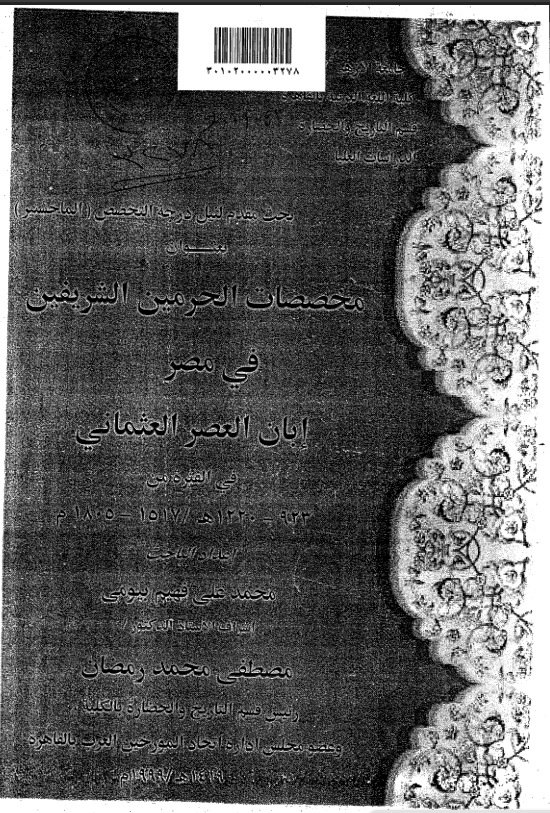 ٣٠١٠٢٠٠٠٠٠٣٢٧٨
جامعة الأزهر
كلية اللغة العربية بالقاهرة
قسم التاريخ والحضارة
الدراسات العليا
بحث مقدم لنيل درجة التخصص (الماجستير)
بعنوان
مخصصات الحرمين الشريفين
في مصر
إبان العصر العثماني
في الفترة من
٩٢٣ – ١٢٢٠هـ / ١٥١٧ – ١٨٠٥ م
إعداد الباحث
محمد علي فهيم بيومي
إشراف الأستاذ الدكتور /
مصطفى محمد رمضان
رئيس قسم التاريخ والحضارة بالكلية
وعضو مجلس إدارة اتحاد المؤرخين العرب بالقاهرة
١٤١٩هـ/١٩٩٩م